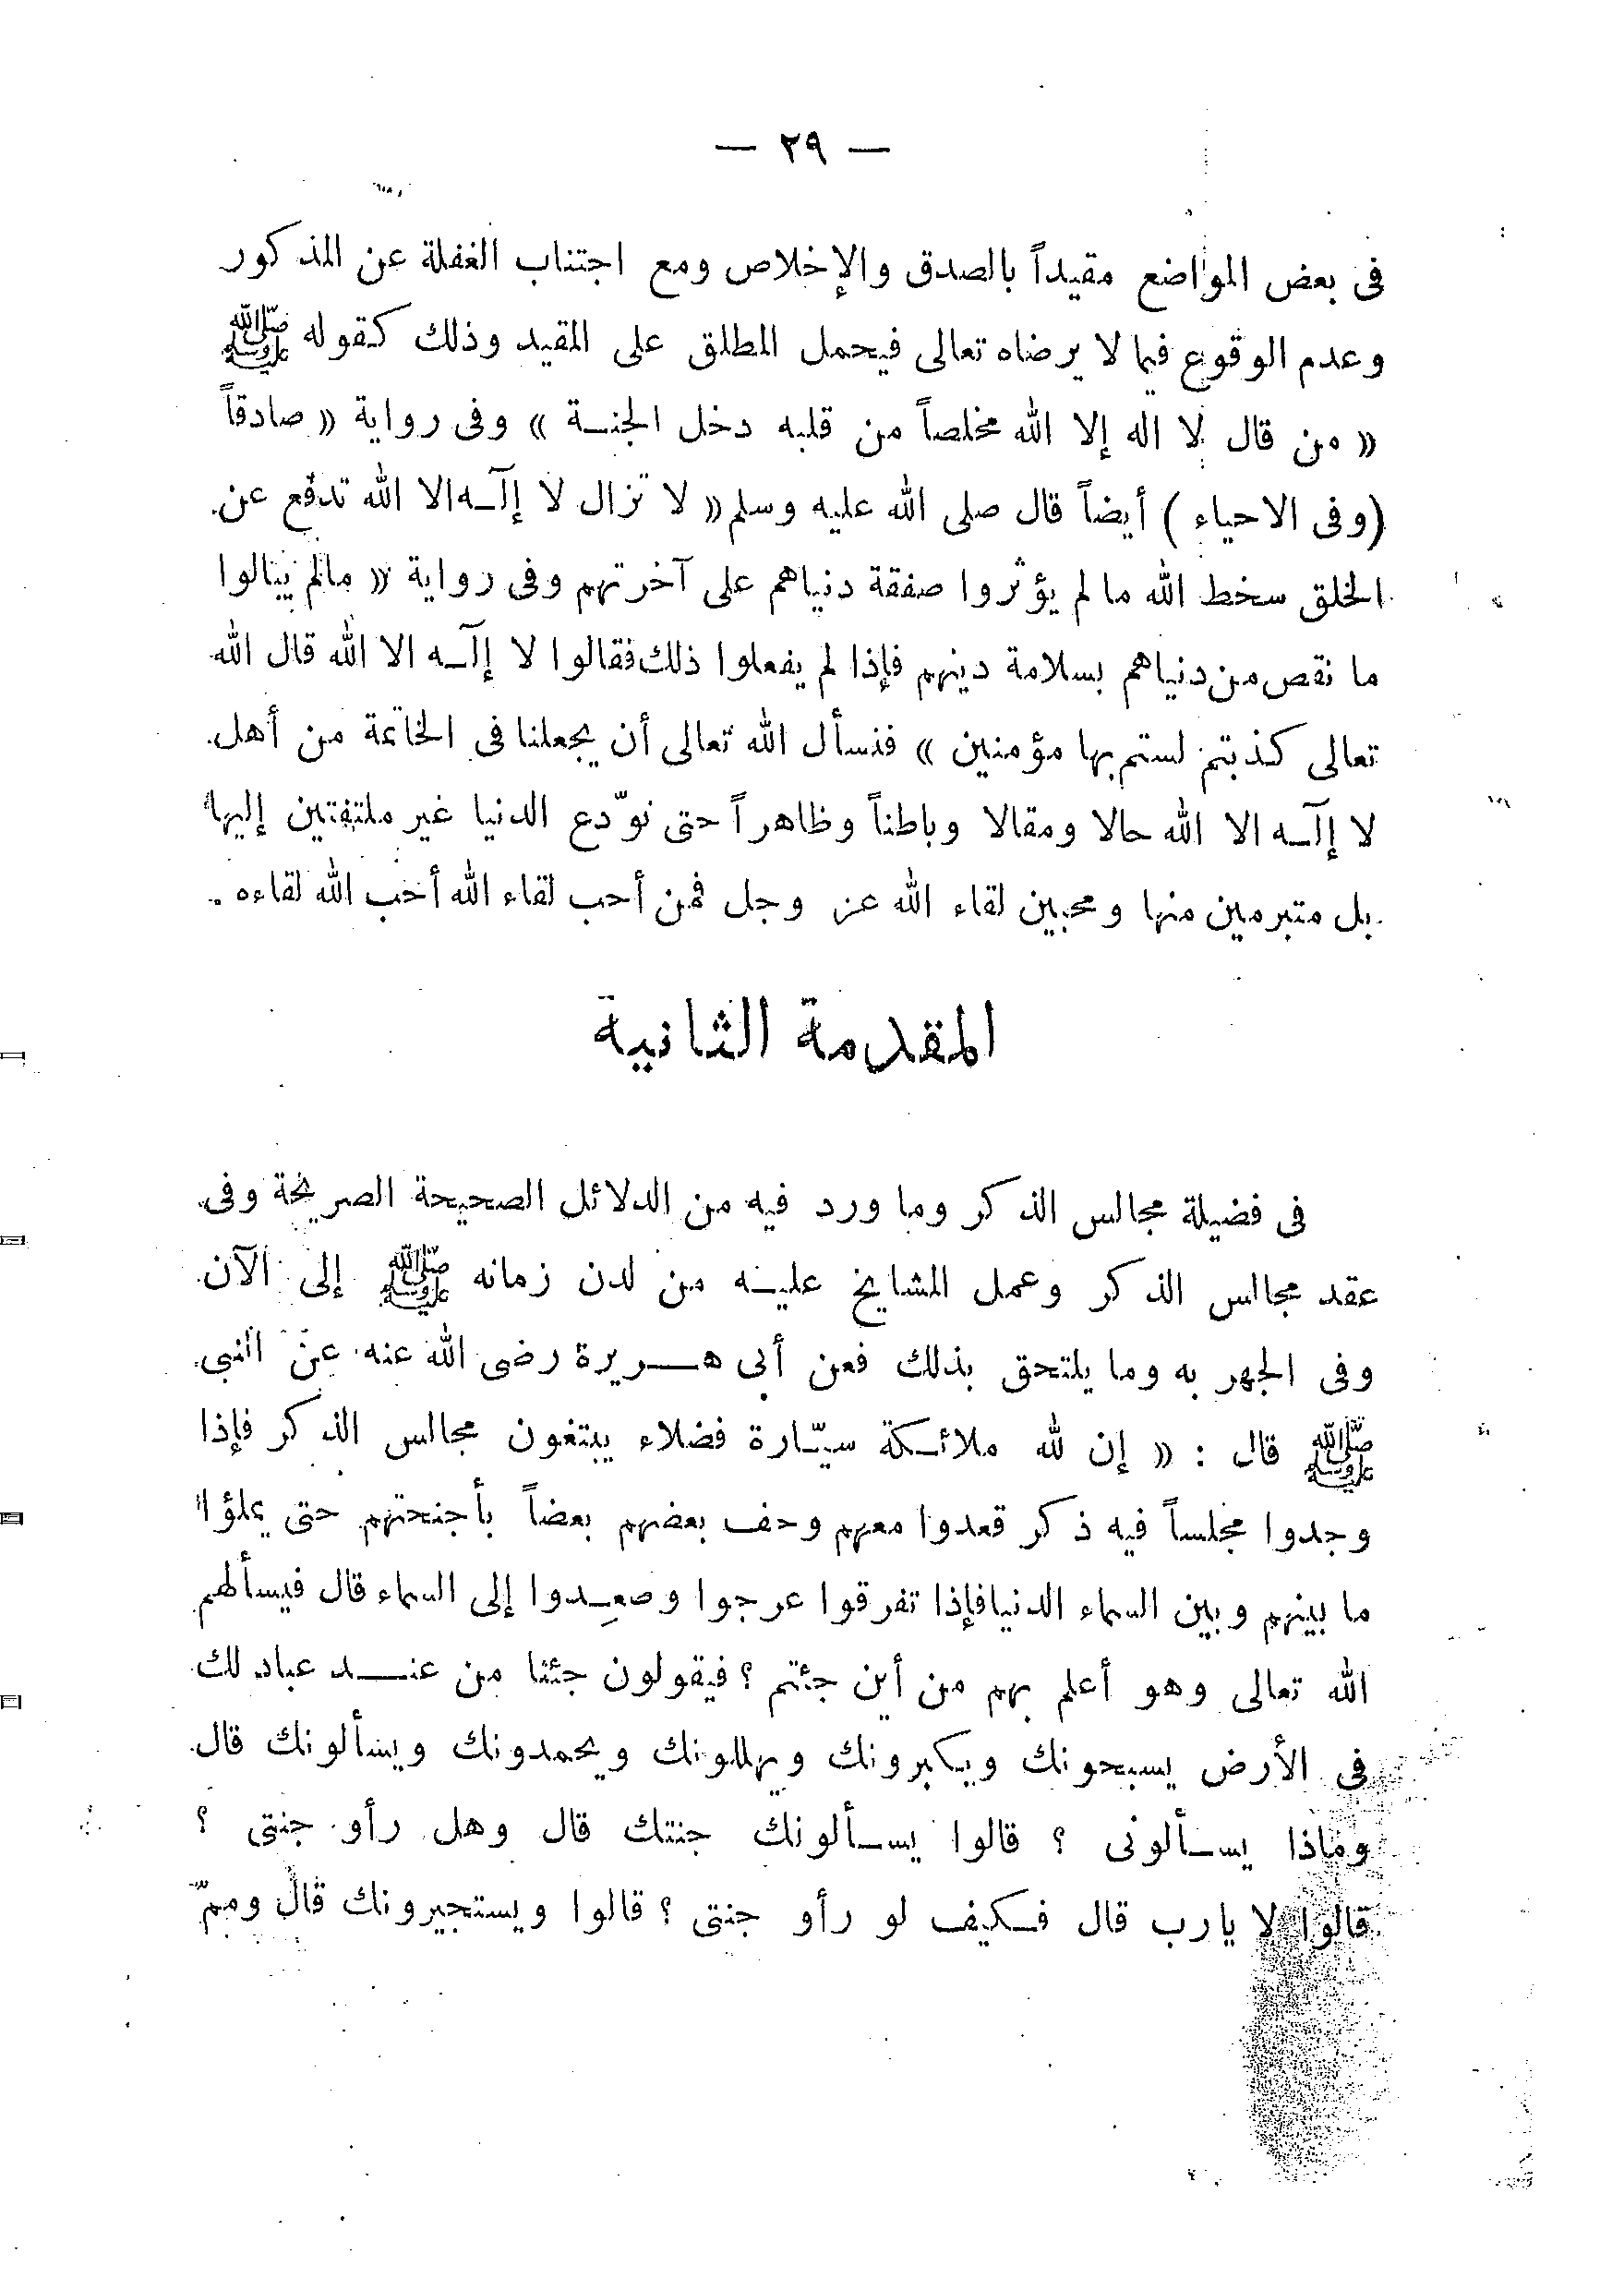 — ٢٩ —
فى بعض المواضع مقيداً بالصدق والإخلاص ومع اجتناب الغفلة عن المذكور
وعدم الوقوع فيما لا يرضاه تعالى فيحمل المطلق على المقيد وذلك كقوله ﷺ
« من قال لا اله إلا الله مخلصاً من قلبه دخل الجنة » وفى رواية « صادقاً
(وفى الاحياء ) أيضاً قال صلى الله عليه وسلم « لا تزال لا إلـه الا الله تدفع عن
الخلق سخط الله ما لم يؤثروا صفقة دنياهم على آخرتهم وفى رواية « مالم يبالوا
ما نقص من دنياهم بسلامة دينهم فإذا لم يفعلوا ذلك فقالوا لا إلـه الا الله قال الله
تعالى كذبتم لستم بها مؤمنين » فنسأل الله تعالى أن يجعلنا فى الخاتمة من أهل
لا إلـه الا الله حالا ومقالا وباطناً وظاهراً حتى نودّع الدنيا غير ملتفتين إليها
بل متبرمين منها ومحبين لقاء الله عز وجل فمن أحب لقاء الله أحب الله لقاءه .
المقدمة الثانية
فى فضيلة مجالس الذكر وما ورد فيه من الدلائل الصحيحة الصريحة وفى
عقد مجالس الذكر وعمل المشايخ عليه من لدن زمانه ﷺ إلى الآن
وفى الجهر به وما يلتحق بذلك فعن أبى هـريرة رضى الله عنه عن النبى
ﷺ قال : « إن لله ملائكة سيّارة فضلاء يبتغون مجالس الذكر فإذا
وجدوا مجلساً فيه ذكر قعدوا معهم وحف بعضهم بعضاً بأجنحتهم حتى يملؤا
ما بينهم وبين السماء الدنيا فإذا تفرقوا عرجوا وصعِدوا إلى السماء قال فيسألهم
الله تعالى وهو أعلم بهم من أين جئتم ؟ فيقولون جئنا من عنـد عباد لك
فى الأرض يسبحونك ويكبرونك ويهللونك ويحمدونك ويسألونك قال
وماذا يسألونى ؟ قالوا يسألونك جنتك قال وهل رأو جنتى ؟
قالوا لا يارب قال فكيف لو رأو جنتى ؟ قالوا ويستجيرونك قال وممّ